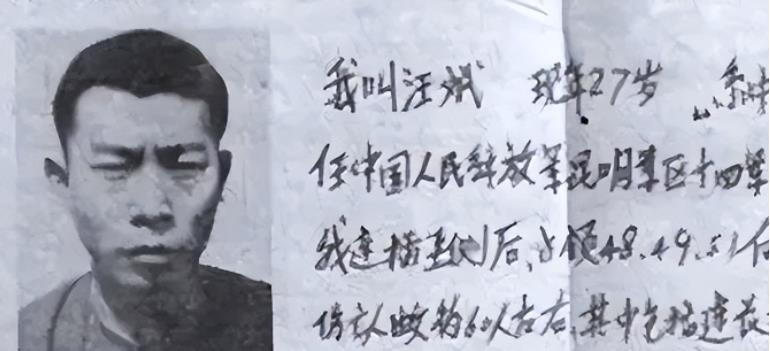 我叫汪斌 现年27岁 系中
任中国人民解放军昆明军区十四军
我连插到后,占领48.49.51
伤亡人 约60人左右,其中包括连长